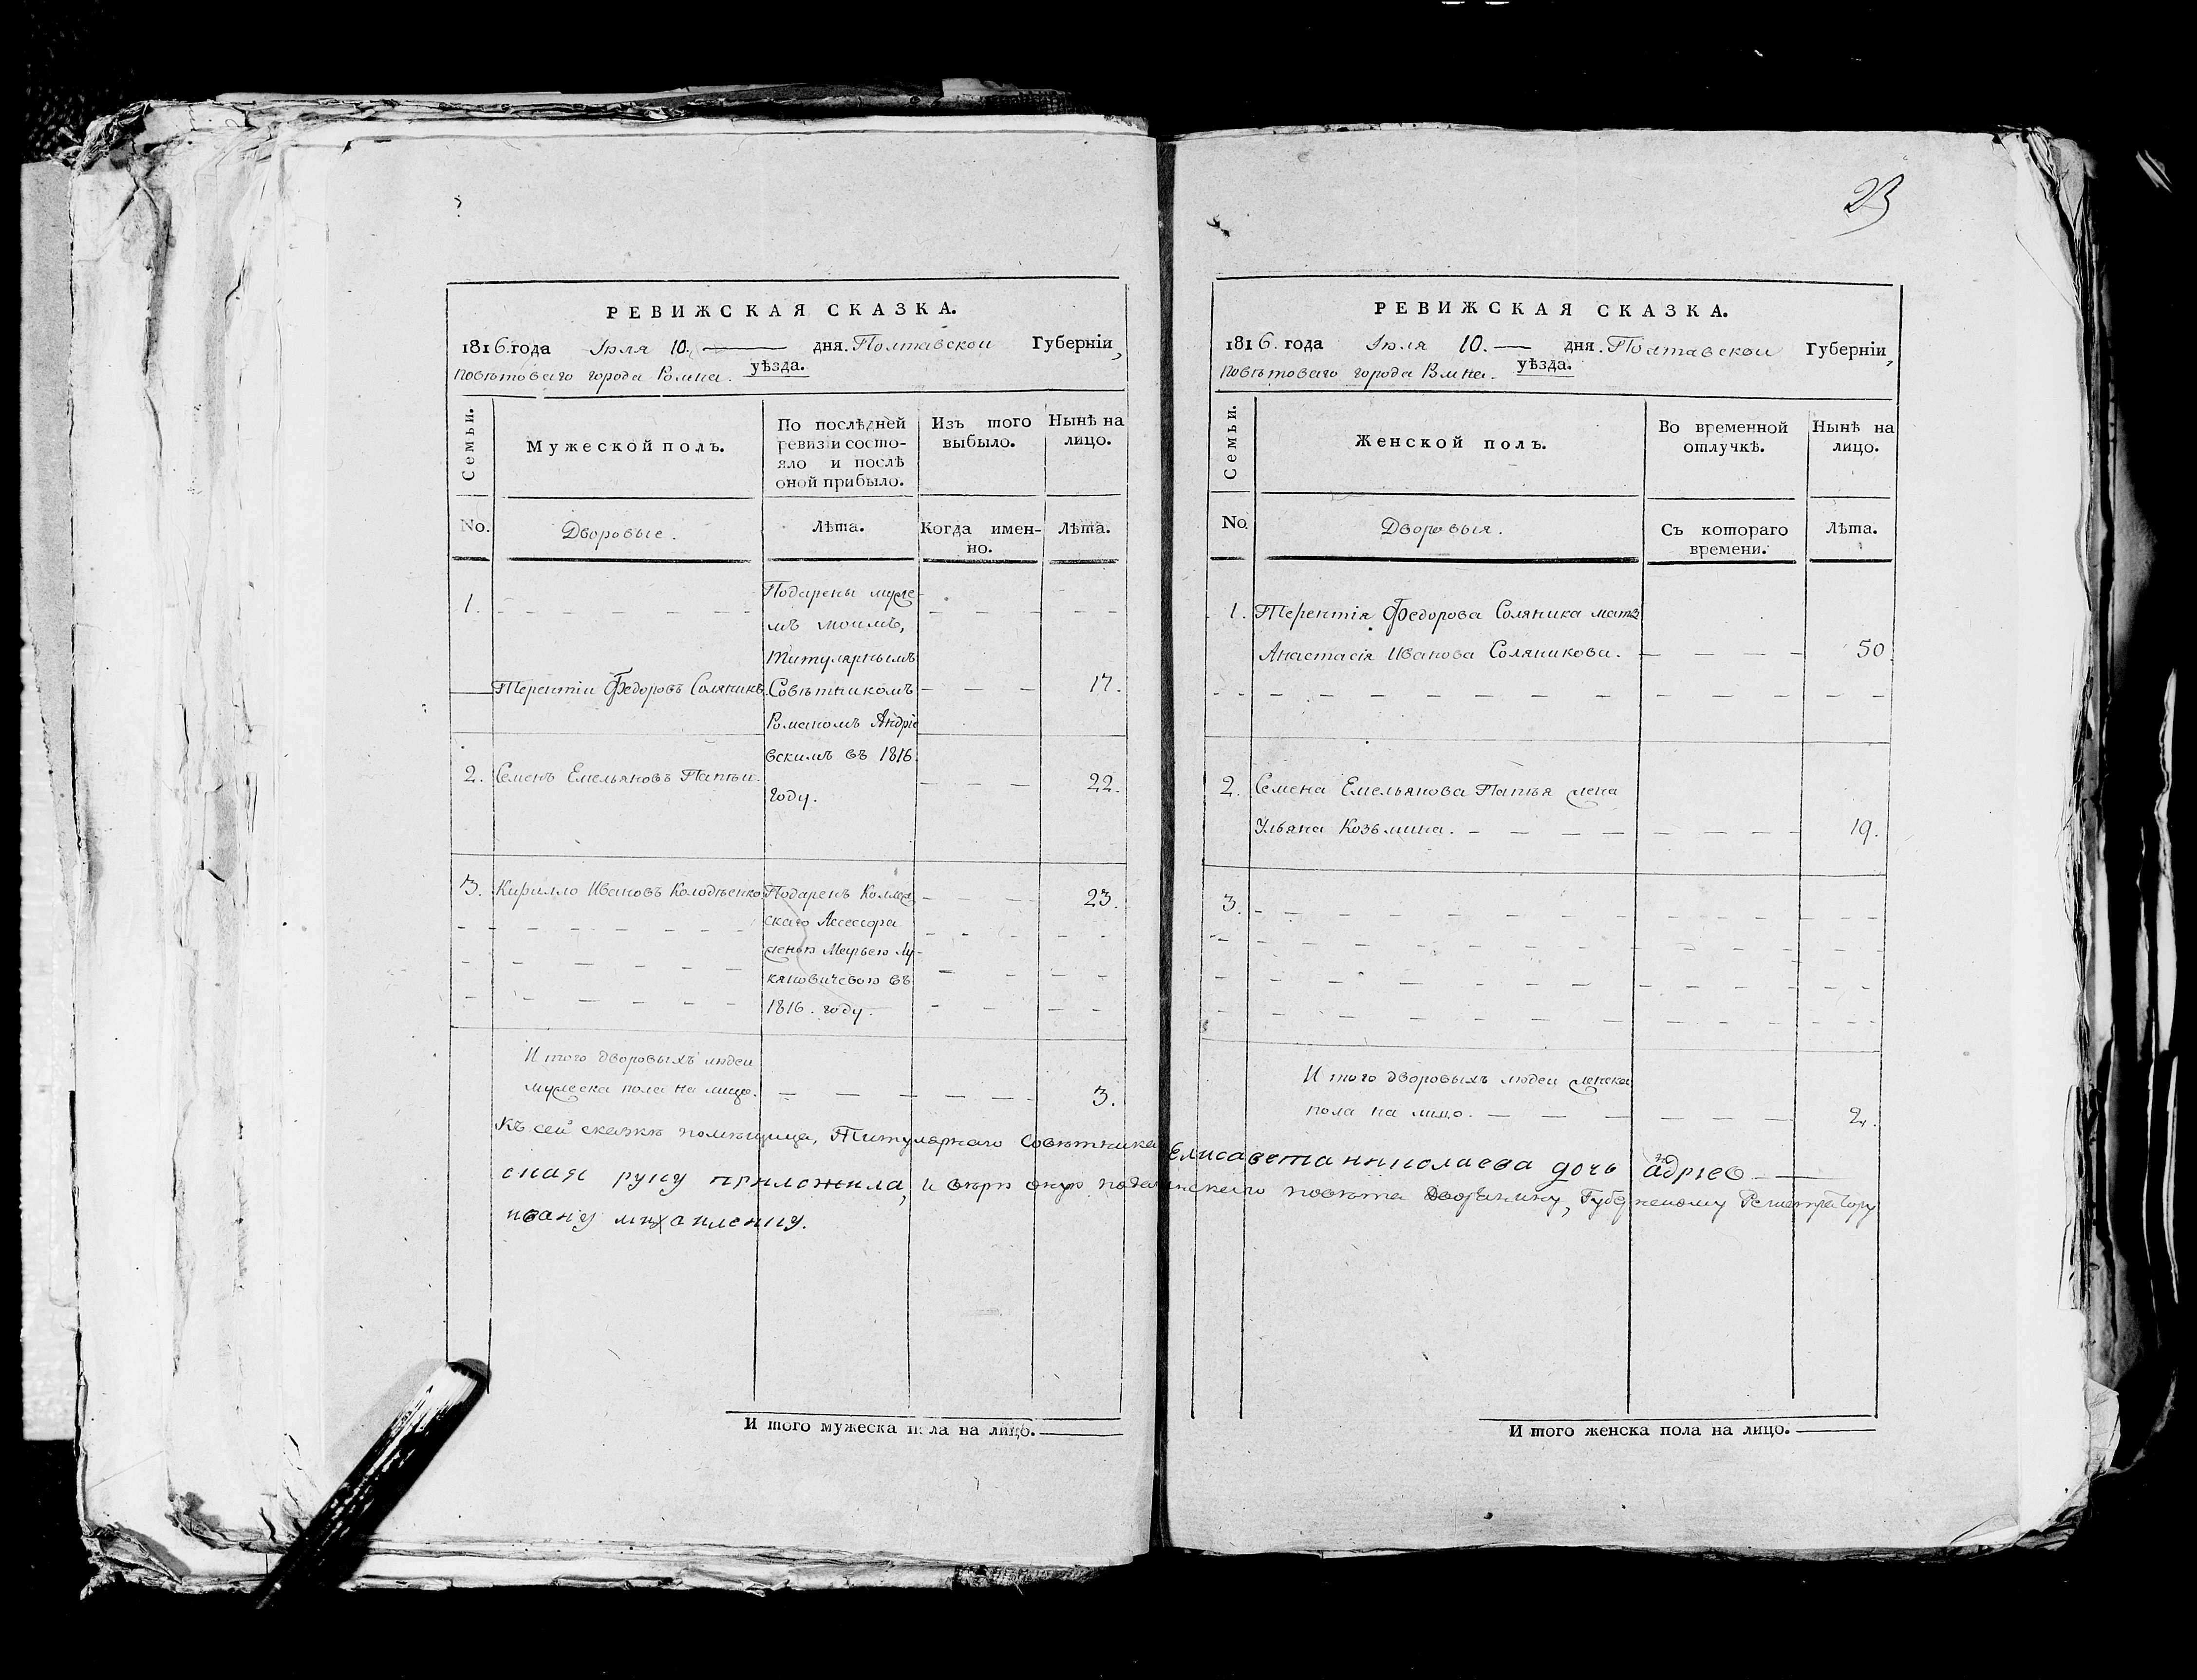 23
РЕВИЖСКАЯ СКАЗКА.
1816. года Іюля 10. дня. Полтавской Губерніи,
повѣтоваго города Ромна. уѣзда.
Семьи.
Мужеской полъ.
По послѣдней
ревизіи состо-
яло и послѣ
оной прибыло.
Изъ того
выбыло.
Нынѣ на
лицо.
No.
Дворовые.
Лѣта.
Когда имен-
но.
Лѣта.
1.
Терентій Федоровъ Соляникъ
Подарены муже-
мъ моимъ,
Титулярнымъ
Совѣтникомъ
Романомъ Андріе
вскимъ въ 1816
году.
17.
2. Семенъ Емельяновъ Папѣй.
22.
3. Кирилло Ивановъ Колодѣенко
Подаренъ Коллеж
скаго Ассесора
женою Марьею Лу-
кяновичевою въ
1816. году.
23.
И того дворовыхъ людей
мужеска пола на лицо.
3.
РЕВИЖСКАЯ СКАЗКА.
1816. года Іюля 10. дня. Полтавской Губерніи,
повѣтоваго города Рмна. уѣзда.
Семьи.
Женской полъ.
Во временной
отлучкѣ.
Нынѣ на
лицо.
No.
Дворовыя.
Съ котораго
времени.
Лѣта.
1. Терентія Федорова Соляника мать
Анастасія Иванова Соляникова. 50
2. Семена Емельянова Папѣя жена
Ульяна Козьмина. 19.
3.
И того дворовыхъ людей женска
пола на лицо. 2.
Къ сей сказкѣ помѣщица, Титулярнаго Совѣтника Елисавета николаева дочь андріев
ская руку приложила, и вѣрю оную подать повѣта Дворянину, Губернскому Регистратору
ивану
И того мужеска пола на лицо.
И того женска пола на лицо.